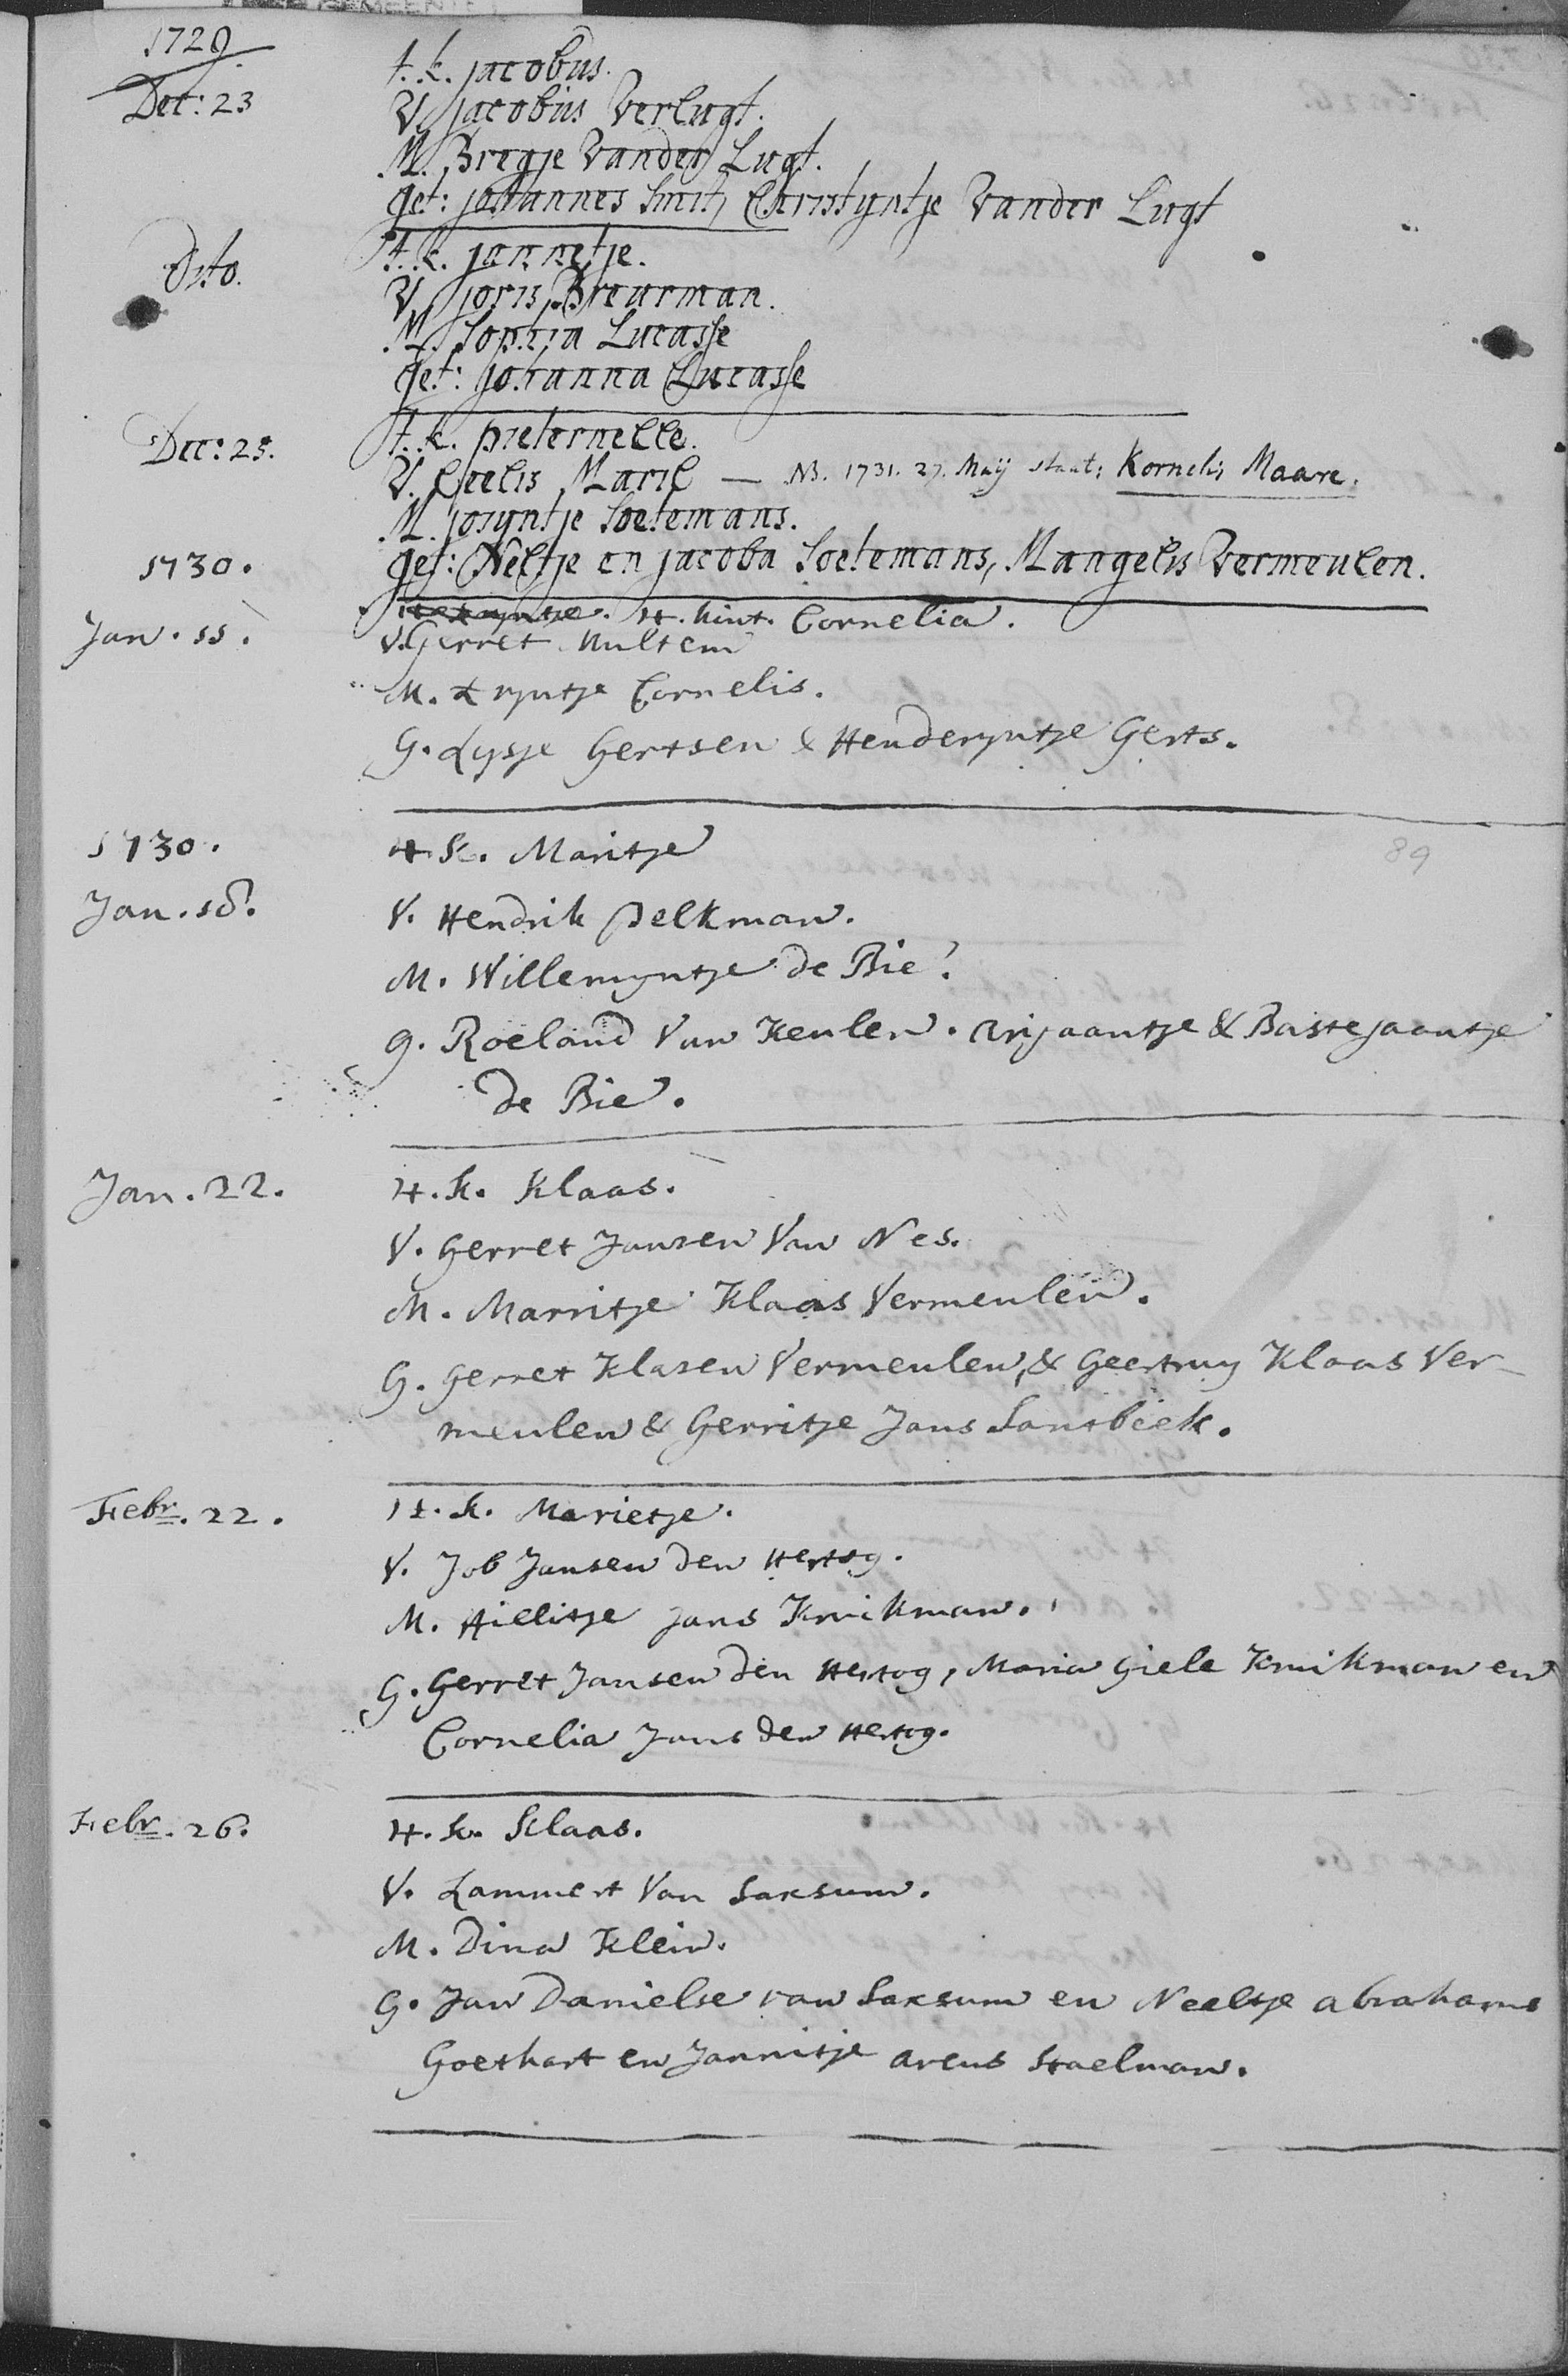 1729
t. k. jacobus.
Dec: 23
V jacobus Verlugt.
M. Bregje Vander Lugt.
get: johannes Smit, Christyntje Vander Lugt
Dito.
t. k. jannetje.
V. joris Breurman.
M. Sophia Lucasse
get: johanna Lucasse
Dec: 25.
t. k. pieternelle.
V. Ceelis Maril — NB. 1731. 27. Maÿ staat: Kornelis Maare.
M. josyntje Soetemans.
1730.
get: Neltje en jacoba Soetemans, Mangelis Vermeulen.
Jan. 11.
H. kint. Cornelia.
V. Gerret Multem
M. Tryntje Cornelis.
G. Lysje Gertsen & Henderyntje Gerts.
1730.
H. K. Maritje
89
Jan. 18.
V. Hendrik pelkman.
M. Willemyntje de Bie.
G. Roeland Van Keulen. Arijaantje & Bastejaantje
de Bie.
Jan. 22.
H. K. Klaas.
V. Gerret Jansen Van Nes.
M. Marritje Klaas Vermeulen.
G. Gerret Klasen Vermeulen, & Geertruy Klaas Ver-
meulen & Gerritje Jans Santbeek.
Febr. 22.
H. K. Marietje.
V. Job Jansen den Hertog.
M. Hillitje Jans Kruikman.
G. Gerret Jansen den Hertog, Maria Giele Kruikman en
Cornelia Jans den Hertog.
Febr. 26.
H. K. Klaas.
V. Lammert Van Saxsum.
M. Dina Klein.
G. Jan Danielse van Saxsum en Neeltje abrahams
Goethart en Jannitje arens Staelman.